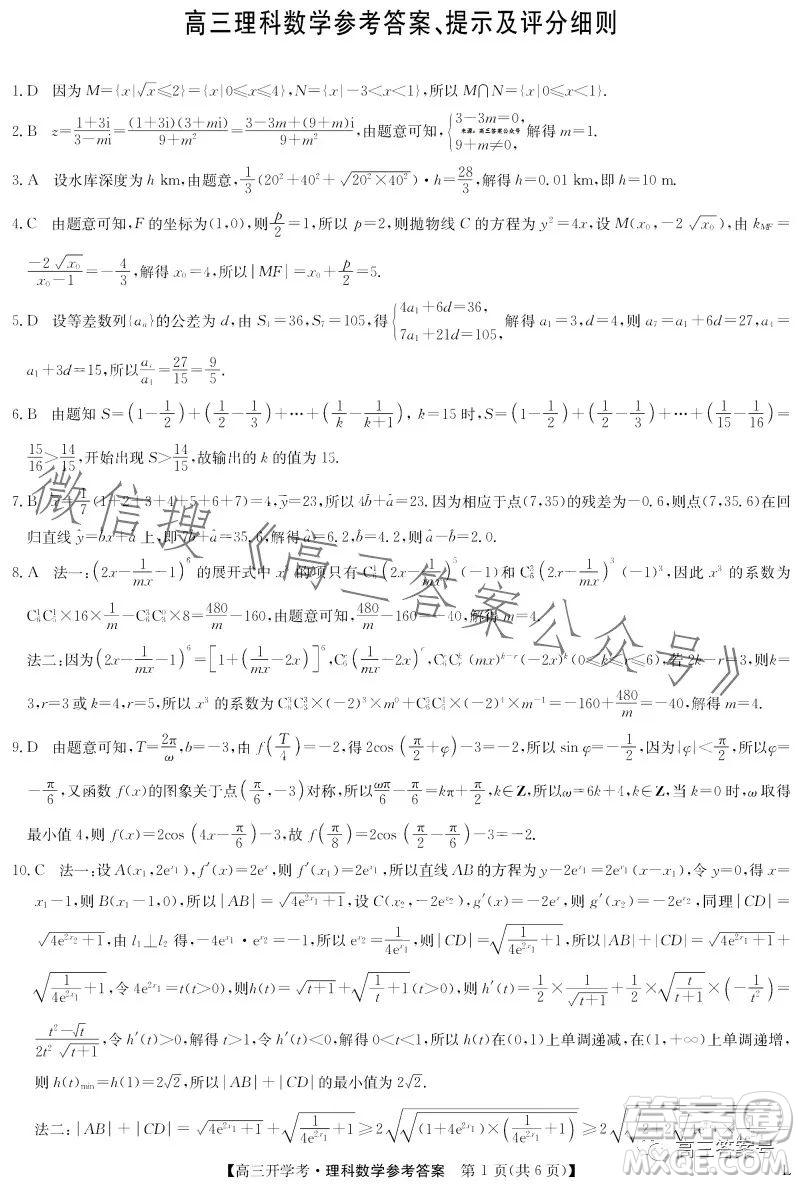 高三理科数学参考答案、提示及评分细则
1. D 因为 M={x|√x≤2}={x|0≤x≤4},N={x|-3<x<1},所以 M∩N={x|0≤x<1}.
2. B z=(1+3i)/(3-mi)=((1+3i)(3+mi))/(9+m²)=(3-3m+(9+m)i)/(9+m²),由题意可知,{3-3m=0, 9+m≠0, 解得 m=1.
来源:高三答案公众号
3. A 设水库深度为 h km,由题意,1/3(20²+40²+√(20²×40²))·h=28/3,解得 h=0.01 km,即 h=10 m.
4. C 由题意可知,F 的坐标为(1,0),则 p/2=1,所以 p=2,则抛物线 C 的方程为 y²=4x,设 M(x₀,-2√x₀),由 k_MF=
(-2√x₀)/(x₀-1)=-4/3,解得 x₀=4,所以|MF|=x₀+p/2=5.
5. D 设等差数列{aₙ}的公差为 d,由 S₄=36,S₇=105,得{4a₁+6d=36, 7a₁+21d=105, 解得 a₁=3,d=4,则 a₇=a₁+6d=27,a₄=
a₁+3d=15,所以 a₇/a₄=27/15=9/5.
6. B 由题知 S=(1-1/2)+(1/2-1/3)+…+(1/k-1/(k+1)), k=15 时,S=(1-1/2)+(1/2-1/3)+…+(1/15-1/16)=
15/16>14/15,开始出现 S>14/15,故输出的 k 的值为 15.
7. B =1/7(1+2+3+4+5+6+7)=4,ȳ=23,所以 4b̂+â=23.因为相应于点(7,35)的残差为-0.6,则点(7,35.6)在回
归直线 ŷ=b̂x+â 上,即 7b̂+â=35.6,解得 b̂=4.2,则 â=-2.0.
8. A 法一:(2x-1/(mx)-1)⁶的展开式中 x³的项只有 C₆¹(2x-1/(mx))⁵(-1)和 C₆³(2x-1/(mx))³(-1)³,因此 x³ 的系数为
C₆¹C₅¹×16×1/m-C₆³C₃⁰×8=480/m-160,由题可知,480/m-160=-40,解得 m=4.
法二:因为(2x-1/(mx)-1)⁶=[1+(1/(mx)-2x)]⁶,C₆ᵏ(1/(mx)-2x)ᵏ,C₆ᵏCₖʳ(mx)ᵏ⁻ʳ(-2x)ᵏ(0≤r≤k≤6),若 2k-r=3,则k=
3,r=3 或 k=4,r=5,所以 x³ 的系数为 C₆³C₃³×(-2)³×m⁰+C₆⁵C₅⁴×(-2)⁴×m⁻¹=-160+480/m=-40,解得 m=4.
9. D 由题意可知,T=2π/ω,b=-3,由 f(T/4)=-2,得 2cos(π/2+φ)-3=-2,所以 sin φ=-1/2,因为|φ|<π/2,所以φ=
-π/6,又函数 f(x)的图象关于点(π/6,-3)对称,所以 ωπ/6-π/6=kπ+π/2,k∈Z,所以ω=6k+4,k∈Z,当 k=0 时,ω 取得
最小值 4,则 f(x)=2cos(4x-π/6)-3,故 f(π/8)=2cos(π/2-π/6)-3=-2.
10. C 法一:设 A(x₁,2e^{x₁}),f′(x)=2eˣ,则 f′(x₁)=2e^{x₁},所以直线 AB 的方程为 y-2e^{x₁}=2e^{x₁}(x-x₁),令 y=0,得 x=
x₁-1,则 B(x₁-1,0),所以|AB|=√(4e^{2x₁}+1),设 C(x₂,-2e^{x₂}),g′(x)=-2eˣ,则 g′(x₂)=-2e^{x₂},同理|CD|=
√(4e^{2x₂}+1),由 l₁⊥l₂ 得,-4e^{x₁}·e^{x₂}=-1,所以 e^{x₂}=1/(4e^{x₁}),则|CD|=√(1/(4e^{2x₁})+1),所以|AB|+|CD|=√(4e^{2x₁}+1)+
√(1/(4e^{2x₁})+1),令 4e^{2x₁}=t(t>0),则h(t)=√(t+1)+√(1/t+1)(t>0),则 h′(t)=1/2×1/√(t+1)+1/2×√(t/(t+1))×(-1/t²)=
(t²-√t)/(2t²√(t+1)),令 h′(t)>0,解得 t>1,令 h′(t)<0,解得 0<t<1,所以 h(t)在(0,1)上单调递减,在(1,+∞)上单调递增,
则 h(t)min=h(1)=2√2,所以|AB|+|CD|的最小值为 2√2.
法二:|AB|+|CD|=√(4e^{2x₁}+1)+√(1/(4e^{2x₁})+1)≥2√(√((4e^{2x₁}+1)×(1/(4e^{2x₁})+1)))≥2
【高三开学考·理科数学参考答案 第 1 页(共 6 页)】
L
微信搜《高三答案公众号》
答案圈
高三答案号